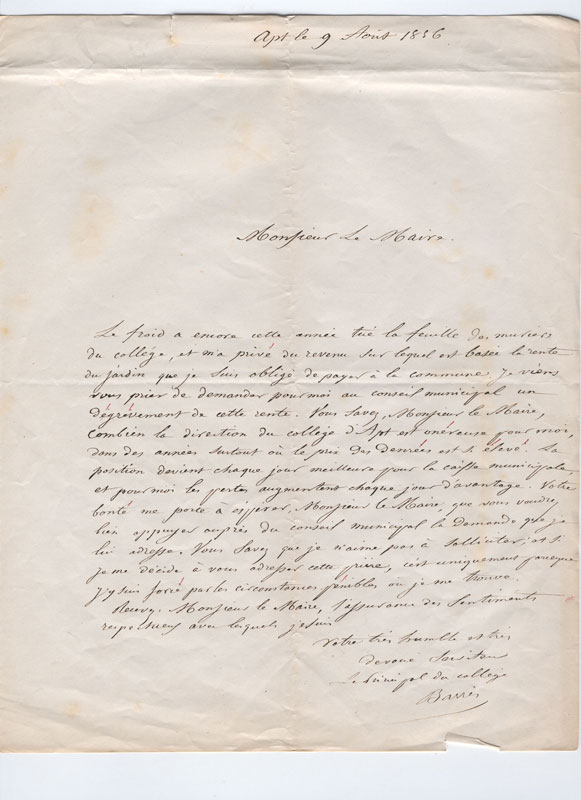 Apt le 9 Août 1856
Monsieur Le Maire.
Le froid a encore cette année tué la feuille des muriers
du collège, et m'a privé du revenu sur lequel est basée la rente
du jardin que je suis obligé de payer à la commune. Je viens
vous prier de demander pour moi au conseil municipal un
dégrèvement de cette rente. Vous Savez, Monsieur le Maire,
combien la direction du collège d'Apt est onéreuse pour moi,
dans des années surtout où le prix des denrées est si élevé. La
position devient chaque jour meilleure pour la caisse municipale
et pour moi les pertes augmentent chaque jour d'avantage. Votre
bonté me porte à espérer, Monsieur le Maire, que vous voudrez
bien appuyer auprès du conseil municipal la demande que je
lui adresse. Vous Savez que je n'aime pas à solliciter; et si
je me décide à vous adresser cette prière, c'est uniquement parceque
j'y suis forcé par les circonstances pénibles où je me trouve.
Recevez, Monsieur le Maire, l'assurance des Sentiments
respectueux avec lesquels je suis
Votre très humble et très
dévoué Serviteur
Le principal du collège
Barrès